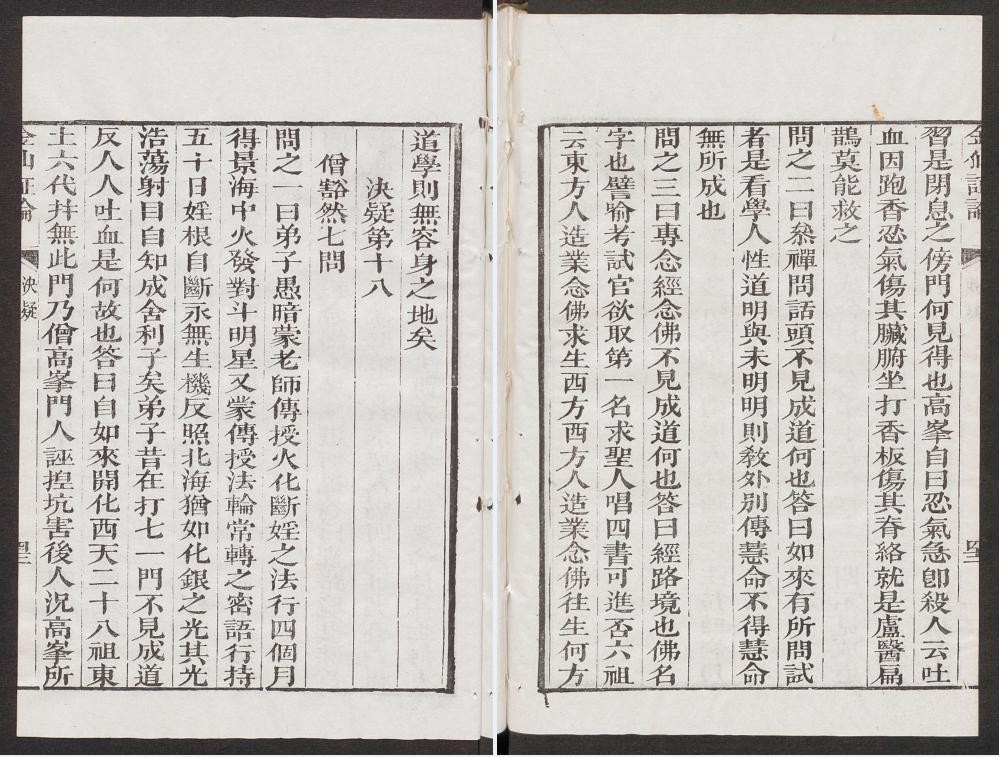 道學則無容身之地矣
決疑第十八
僧豁然七問
問之一曰弟子愚暗蒙老師傳授火化斷婬之法行四個月
得景海中火發對斗明星又蒙傳授法輪常轉之密語行持
五十日婬根自斷永無生機反照北海猶如化銀之光其光
浩蕩射目自知成舍利子矣弟子昔在打七一門不見成道
反人人吐血是何故也答曰自如來開化西天二十八祖東
土六代並無此門乃僧高峯門人誣揑坑害後人況高峯所
金仙證論 決疑
習是閉息之傍門何見得也高峯自曰忍氣急卽殺人云吐
血因跑香忍氣傷其臟腑坐打香板傷其脊絡就是盧醫扁
鵲莫能救之
問之二曰叅禪問話頭不見成道何也答曰如來有所問試
者是看學人性道明與未明明則敎外別傳慧命不得慧命
無所成也
問之三曰專念經念佛不見成道何也答曰經路境也佛名
字也譬喻考試官欲取第一名求聖人唱四書可進否六祖
云東方人造業念佛求生西方西方人造業念佛往生何方